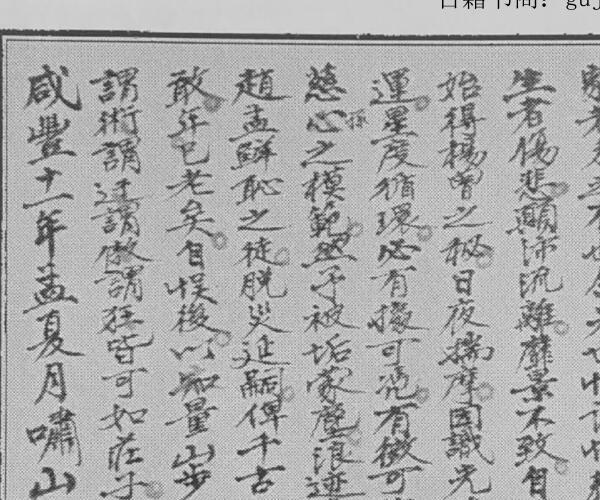 古籍书阁：guj
生者傷悲顛沛流離靡景不致自
始得楊曾之秘日夜揣摩因識先
運星度循環必有據可憑有徵可
慈孫心之模範然予被垢蒙塵浪迹
趙孟鮮恥之徒脱災延嗣俾千古
敢許已老矣自悞後以知量山步
謂術謂迂謂傲謂狂皆可如莊子
咸豐十一年孟夏月嘯山